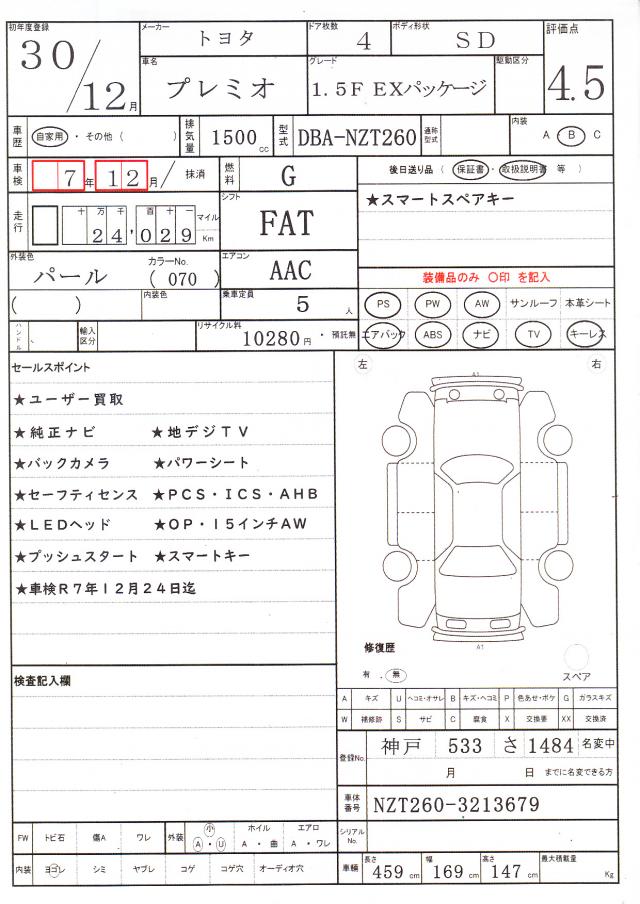 初年度登録 30/12月 メーカー トヨタ ドア枚数 4 ボディ形状 SD 評価点 4.5
車名 プレミオ グレード 1.5F EXパッケージ 駆動区分
車歴 自家用・その他( ) 排気量 1500cc 型式 DBA-NZT260 通称型式 内装 A B C
車検 7年12月/抹消 燃料 G 後日送り品(保証書・取扱説明書 等)
★スマートスペアキー
走行 十万千百十一 24,029 マイル Km シフト FAT
外装色 パール カラーNo. (070) エアコン AAC 装備品のみ 〇印 を記入
( ) 内装色 乗車定員 5人 PS PW AW サンルーフ 本革シート
ハンドル 輸入区分 リサイクル料 10280円・預託無 エアバック ABS ナビ TV キーレス
セールスポイント 左 右
A1
★ユーザー買取
★純正ナビ ★地デジTV
★バックカメラ ★パワーシート
★セーフティセンス ★PCS・ICS・AHB
★LEDヘッド ★OP・15インチAW
★プッシュスタート ★スマートキー
★車検R7年12月24日迄
修復歴 A1
有 . 無 スペア
検査記入欄
A キズ U ヘコミ・オサレ B キズ・ヘコミ P 色あせ・ボケ G ガラスキズ
W 補修跡 S サビ C 腐食 X 交換要 XX 交換済
登録No. 神戸 533 さ 1484 名変中
月 日 までに名変できる方
車体番号 NZT260-3213679
FW トビ石 傷A ワレ 外装 小 A・U ホイル A・曲 エアロ A・ワレ シリアルNo.
内装 ヨゴレ シミ ヤブレ コゲ コゲ穴 オーディオ穴 車輛 長さ 459cm 幅 169cm 高さ 147cm 最大積載量 Kg